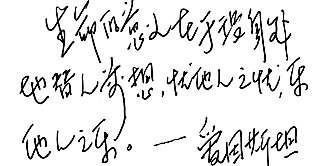 生命的意义在于设身处
地替人着想,忧他人之忧,乐
他人之乐。一爱因斯坦